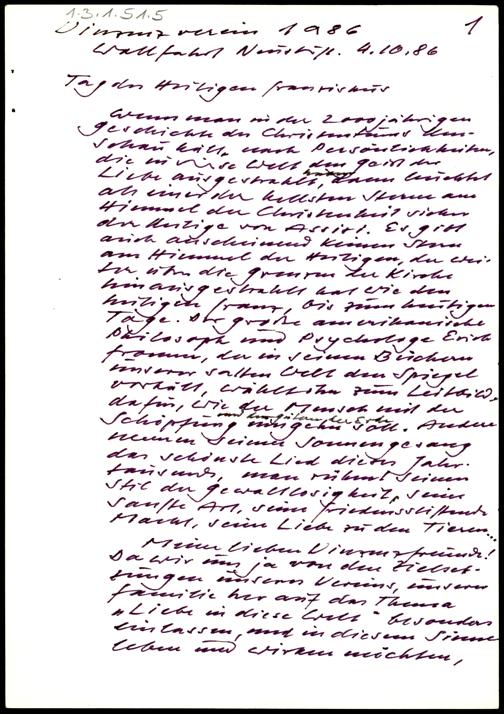 1.3.1.5.1.5
1
Vinzenzverein 1986
Wallfahrt Neustift. 4.10.86
Tag des Heiligen Franziskus
Wenn man in der 2000 jährigen
Geschichte des Christentums Um-
schau hält, nach Persönlichkeiten,
die in diese Welt den Geist der
Liebe ausgestrahlt, dann leuchtet
als einer der hellsten Sterne am
Himmel der Christenheit sicher
der Heilige von Assisi. Es gibt
auch anscheinend keinen Stern
am Himmel der Heiligen, der wei-
ter über die Grenzen der Kirche
hinausgestrahlt hat wie den
heiligen Franz, bis zum heutigen
Tage. Der große amerikanische
Philosoph und Psychologe Erich
Fromm, der in seinen Büchern
unserer satten Welt den Spiegel
vorhält, wählt ihn zum Leitbild
dafür, wie der Mensch mit der
und den Gütern der Erde
Schöpfung umgehn soll. Andere
nennen seinen Sonnengesang
das schönste Lied dieses Jahr-
tausends, man rühmt seinen
Stil der Gewaltlosigkeit, seine
sanfte Art, seine friedensstiftende
Macht, seine Liebe zu den Tieren...
Meine lieben Vinzenzfreunde!
Da wir uns ja von den Zielset-
zungen unseres Vereins, unserer
Familie her auf das Thema
"Liebe in diese Welt" besonders
einlassen, und in diesem Sinne
leben und wirken möchten,